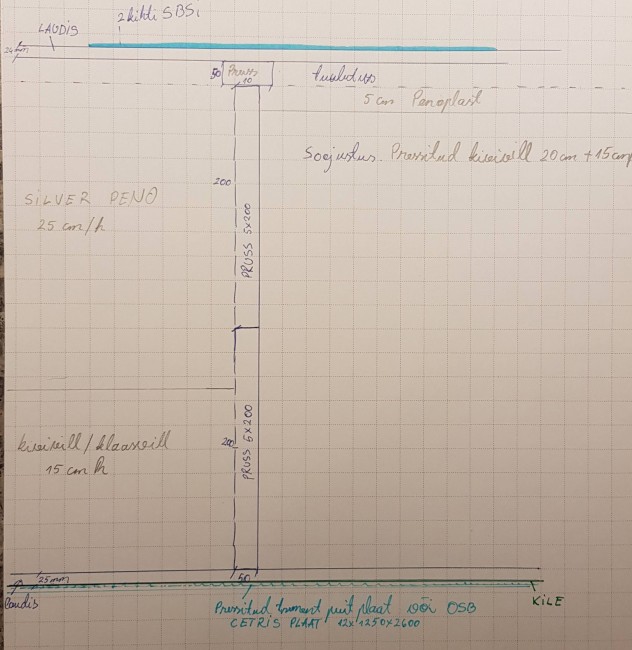 2 kihti SBSi
LAUDIS
24 mm
50 Pruss
10
tuulutus
5 cm Penoplast
Soojustus. Pressitud kivivill 20 cm + 15 cm
200
SILVER PENO
25 cm/h
PRUSS 5x200
kivivill / klaasvill
15 cm h
200
PRUSS 5x200
25mm
50
Laudis
KILE
Pressitud tsement puit plaat või OSB
CETRIS PLAAT 12x1250x2600